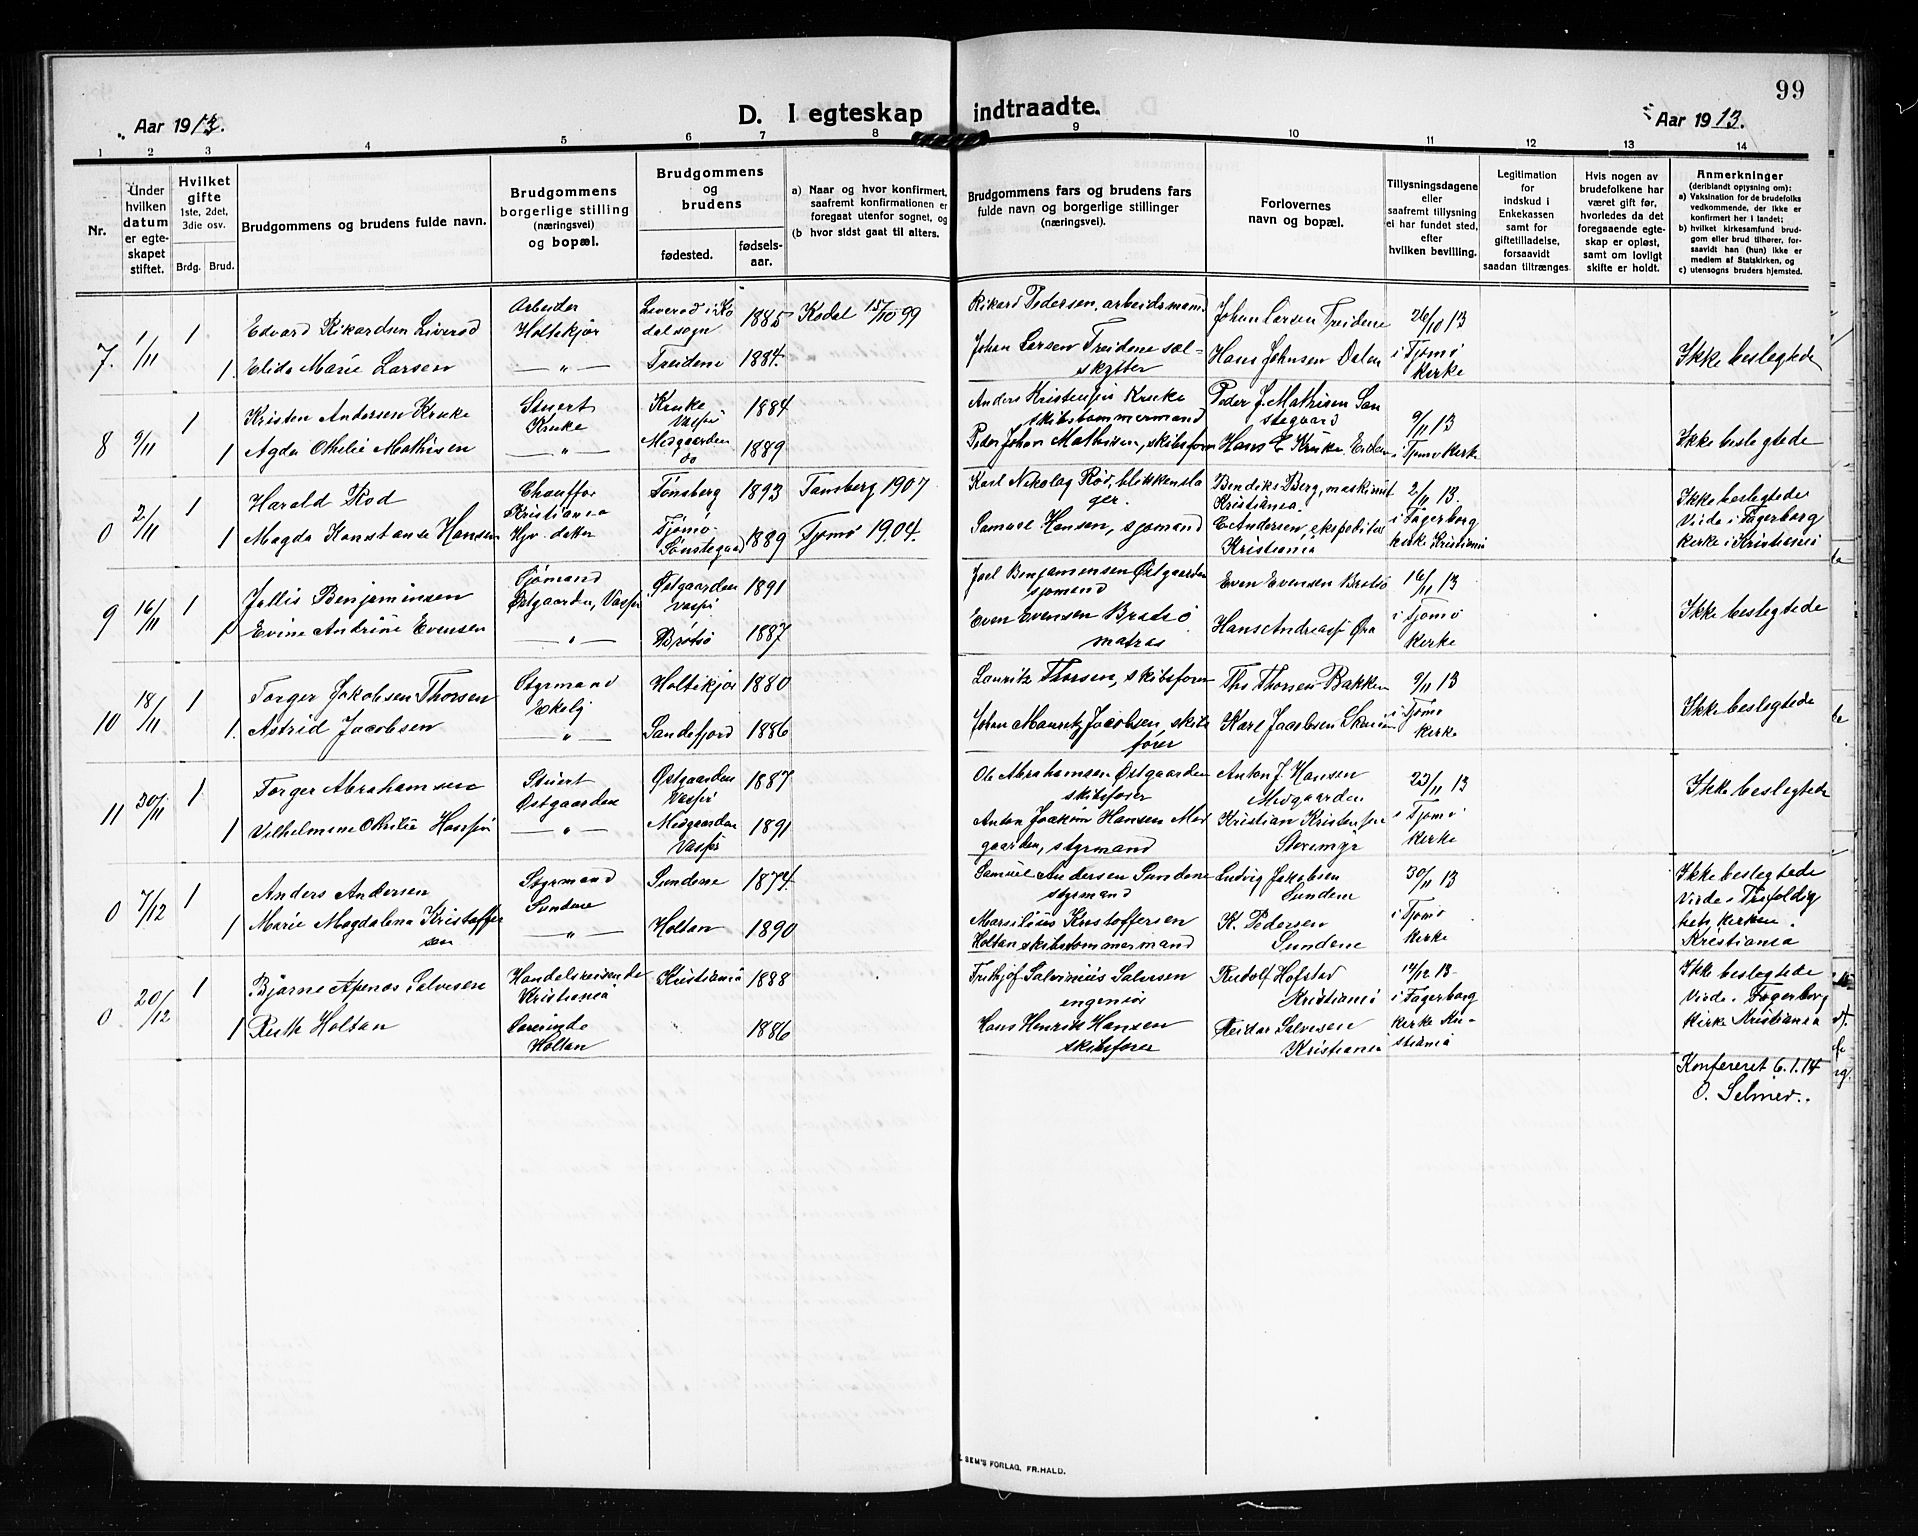 99
Aar 1913.
D. I egteskap indtraadte.
Aar 1913.
1 2 3 4 5 6 7 8 9 10 11 12 13 14
Nr.
Under hvilken datum er egteskapet stiftet.
Hvilket gifte 1ste, 2det, 3die osv.
Brdg. Brud.
Brudgommens og brudens fulde navn.
Brudgommens borgerlige stilling (næringsvei) og bopæl.
Brudgommens og brudens
fødested.
fødselsaar.
a) Naar og hvor konfirmert, saafremt konfirmationen er foregaat utenfor sognet, og
(b hvor sidst gaat til alters.
Brudgommens fars og brudens fars fulde navn og borgerlige stillinger (næringsvei).
Forlovernes navn og bopæl.
Tillysningsdagene eller saafremt tillysning ei har fundet sted, efter hvilken bevilling.
Legitimation for indskud i Enkekassen samt for giftetilladelse, forsaavidt saadan tiltrænges
Hvis nogen av brudefolkene har været gift før, hvorledes da det foregaaende egteskap er opløst, samt om lovligt skifte er holdt.
Anmerkninger (deriblandt oplysning om): a) Vaksination for de brudefolks vedkommende, der ikke er konfirmert her i landet; b) hvilket kirkesamfund brudgom eller brud tilhører, forsaavidt han (hun) ikke er medlem af Statskirken, og c) utensogns bruders hjemsted.
7. 1/11 1 Edvard Rikardsen Liverød Arbeider Holtekjær Liverød i Kodal sogn 1885 Kodal 15/10 99 Rikard Pedersen, arbeidsmand Johan Larsen Treidene 26/10 13
1. Elida Marie Larsen — " — Treidene 1884. Johan Larsen Treidene sælskytter Hans Johnsen Dalen i Tjømø Kirke Ikke beslegtede
8 9/11 1 Kristen Andersen Kruke Stuert Kruke Kruke Vasser 1884 Anders Kristensen Kruke skibstømmermand Peder J. Mathisen Sønstegaard 9/11 13
1 Agda Othilie Mathisen — " — Midgaarden do 1889 Peder Johan Mathisen, skibsfører Hans E Kruke i Tjømø Kirke Ikke beslegtede
0 2/11 1 Harald Rød Chauffør Kristiania Tønsberg 1893 Tønsberg 1907 Karl Nikolay Rød, blikkenslager. Bendiks Berg, maskinist Kristiania. 2/11 13.
1 Magda Konstanse Hansen Hjv. datter Tjømø Sønstegaard 1889 Tjømø 1904. Samuel Hansen, sjømand E Andersen, ekspeditør Kristiania i Fagerborg kirke Kristiania Ikke beslegtede Viede i Fagerborg kirke i Kristiania
9 16/11 1 Jallis Benjaminsen Sjømand Østgaarden, Vasser Østgaarden Vasser 1891 Joel Benjaminsen Østgaarden sjømand Even Evensen Brøtsø 16/11 13
1 Evine Andrine Evensen — " — Brøtsø 1887 Even Evensen Brøtsø matros Hans Andreas Øra i Tjømø Kirke Ikke beslegtede
10 18/11 1 Torger Jakobsen Thorsen Styrmand Ekely Holtekjær 1880 Lauritz Thorsen, skibsfører Ths Thorsen Bakken 9/11 13
1. Astrid Jacobsen — " — Sandefjord 1886 Johan Mauritz Jacobsen, skibsfører Karl Jacobsen i Tjømø Kirke Ikke beslegtede
11 30/11 1 Torger Abrahamsen Stuert Østgaarden Østgaarden Vasser 1887 Ole Abrahamsen Østgaarden skibsfører Anton J. Hansen Midgaarden 23/11 13
1 Vilhelmine Othilie Hansen — " — Midgaarden Vasser 1891 Anton Joakim Hansen Midgaarden, styrmand Kristian Kristensen Storemyr i Tjømø Kirke Ikke beslegtede
0 7/12 1 Anders Andersen Styrmand Sundene Sundene 1874. Samuel Andersen Sundene styrmand Ludvig Jakobsen Sundene 30/11 13
1 Marie Magdalena Kristoffersen — " — Holtan 1890 Kristoffersen Holtan skibstømmermand K. Pedersen Sundene i Tjømø Kirke Ikke beslegtede Viede i Trefoldighets kirken. Kristiania
0 20/12 1 Bjarne Apenæs Salvesen Handelsreisende Kristiania Kristiania 1888 Frithjof Salvesen ingeniør Rudolf Hofstad Kristiania 14/12 13
1 Ruth Holtan Holtan 1886 Hans Henrik Hansen skibsfører Reidar Salvesen Kristiania i Fagerborg Kirke Kristiania Ikke beslegtede Viede i Fagerborg Kirke Kristiania
Konfereret 6.1.14
O. Selmer.
SEM'S FORLAG, FR.HALD.